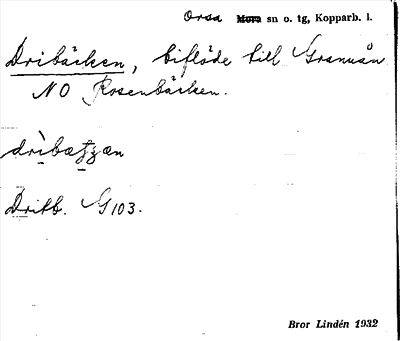 Orsa Mora sn o. tg, Kopparb. l.
Dribäcken, biflöde till Granån
NO Rosenbäcken.
Dritb. G 103.
Bror Lindén 1932